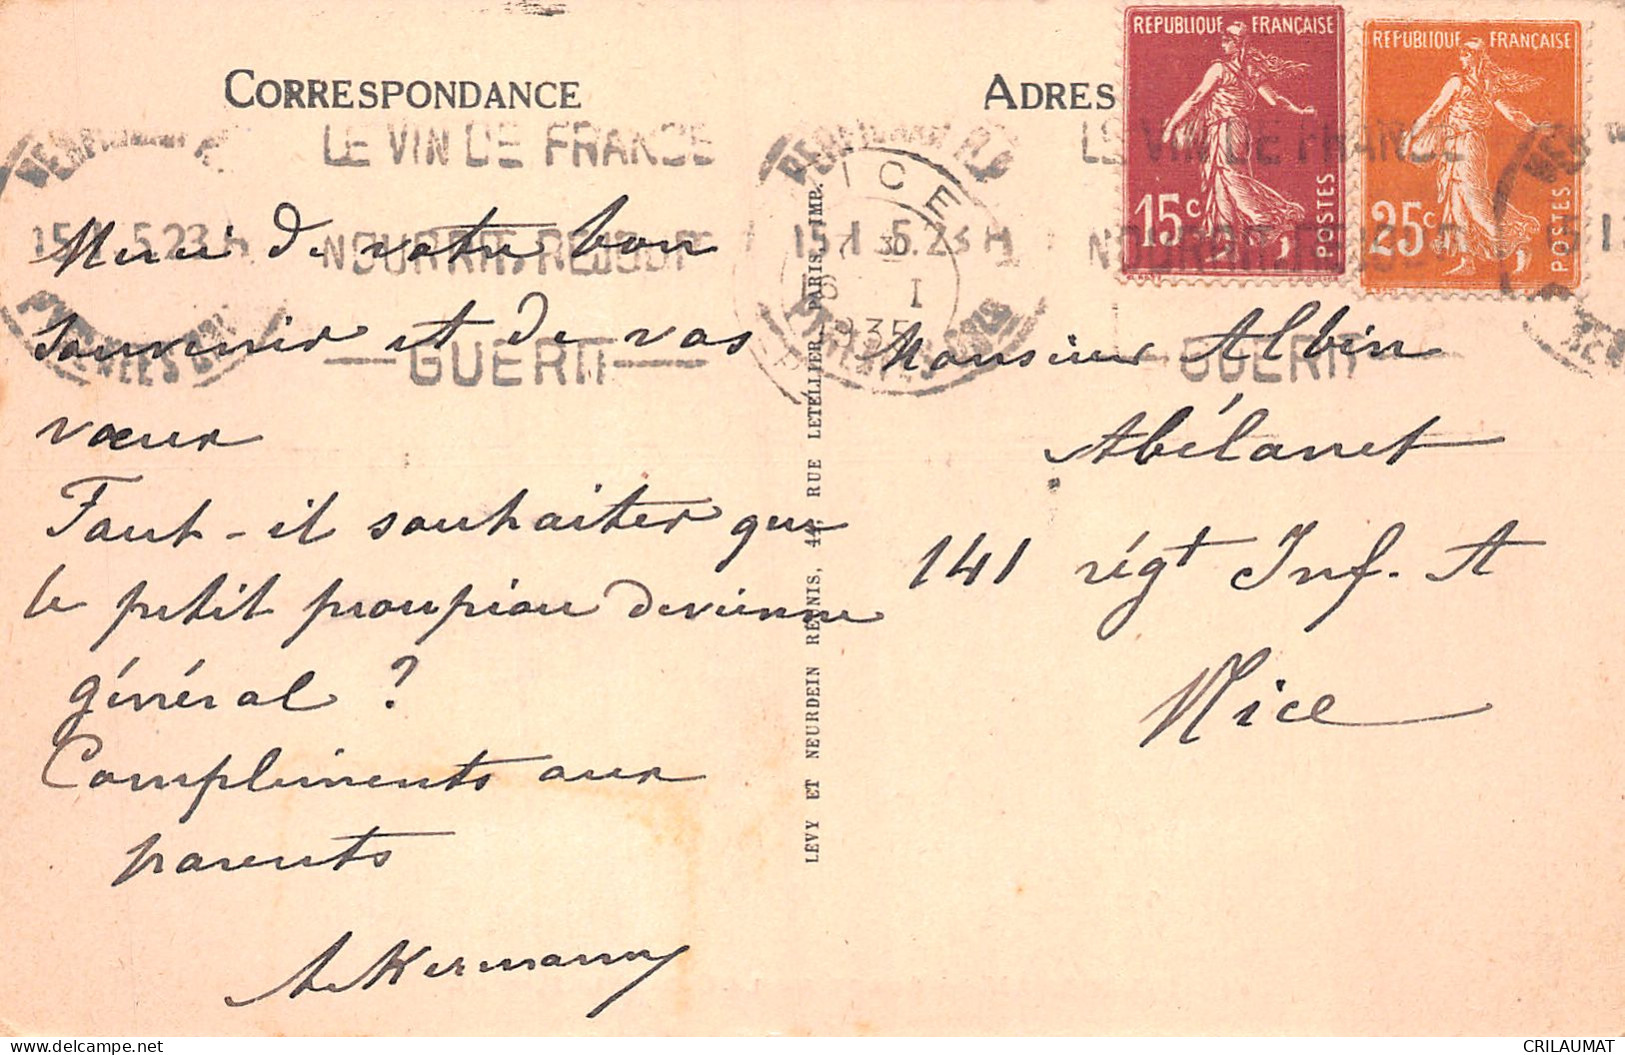 CORRESPONDANCE
ADRES
REPUBLIQUE FRANÇAISE
15c
POSTES
REPUBLIQUE FRANÇAISE
25c
POSTES
LE VIN DE FRANCE
NOURRIT, REJOUIT
GUERIT
LE VIN DE FRANCE
GUERIT
15 1 5.23 H
ICE
I
1935
Merci de votre bon
souvenir et de vos
vœux
Faut-il souhaiter que
le petit proupiou devienne
général ?
Compliments aux
parents
Akermann
LEVY ET NEURDEIN REUNIS, 44, RUE LETELLIER, PARIS. IMP.
Monsieur Albin
Abélanet
141 régt Inf. A
Nice
delcampe.net
CRILAUMAT